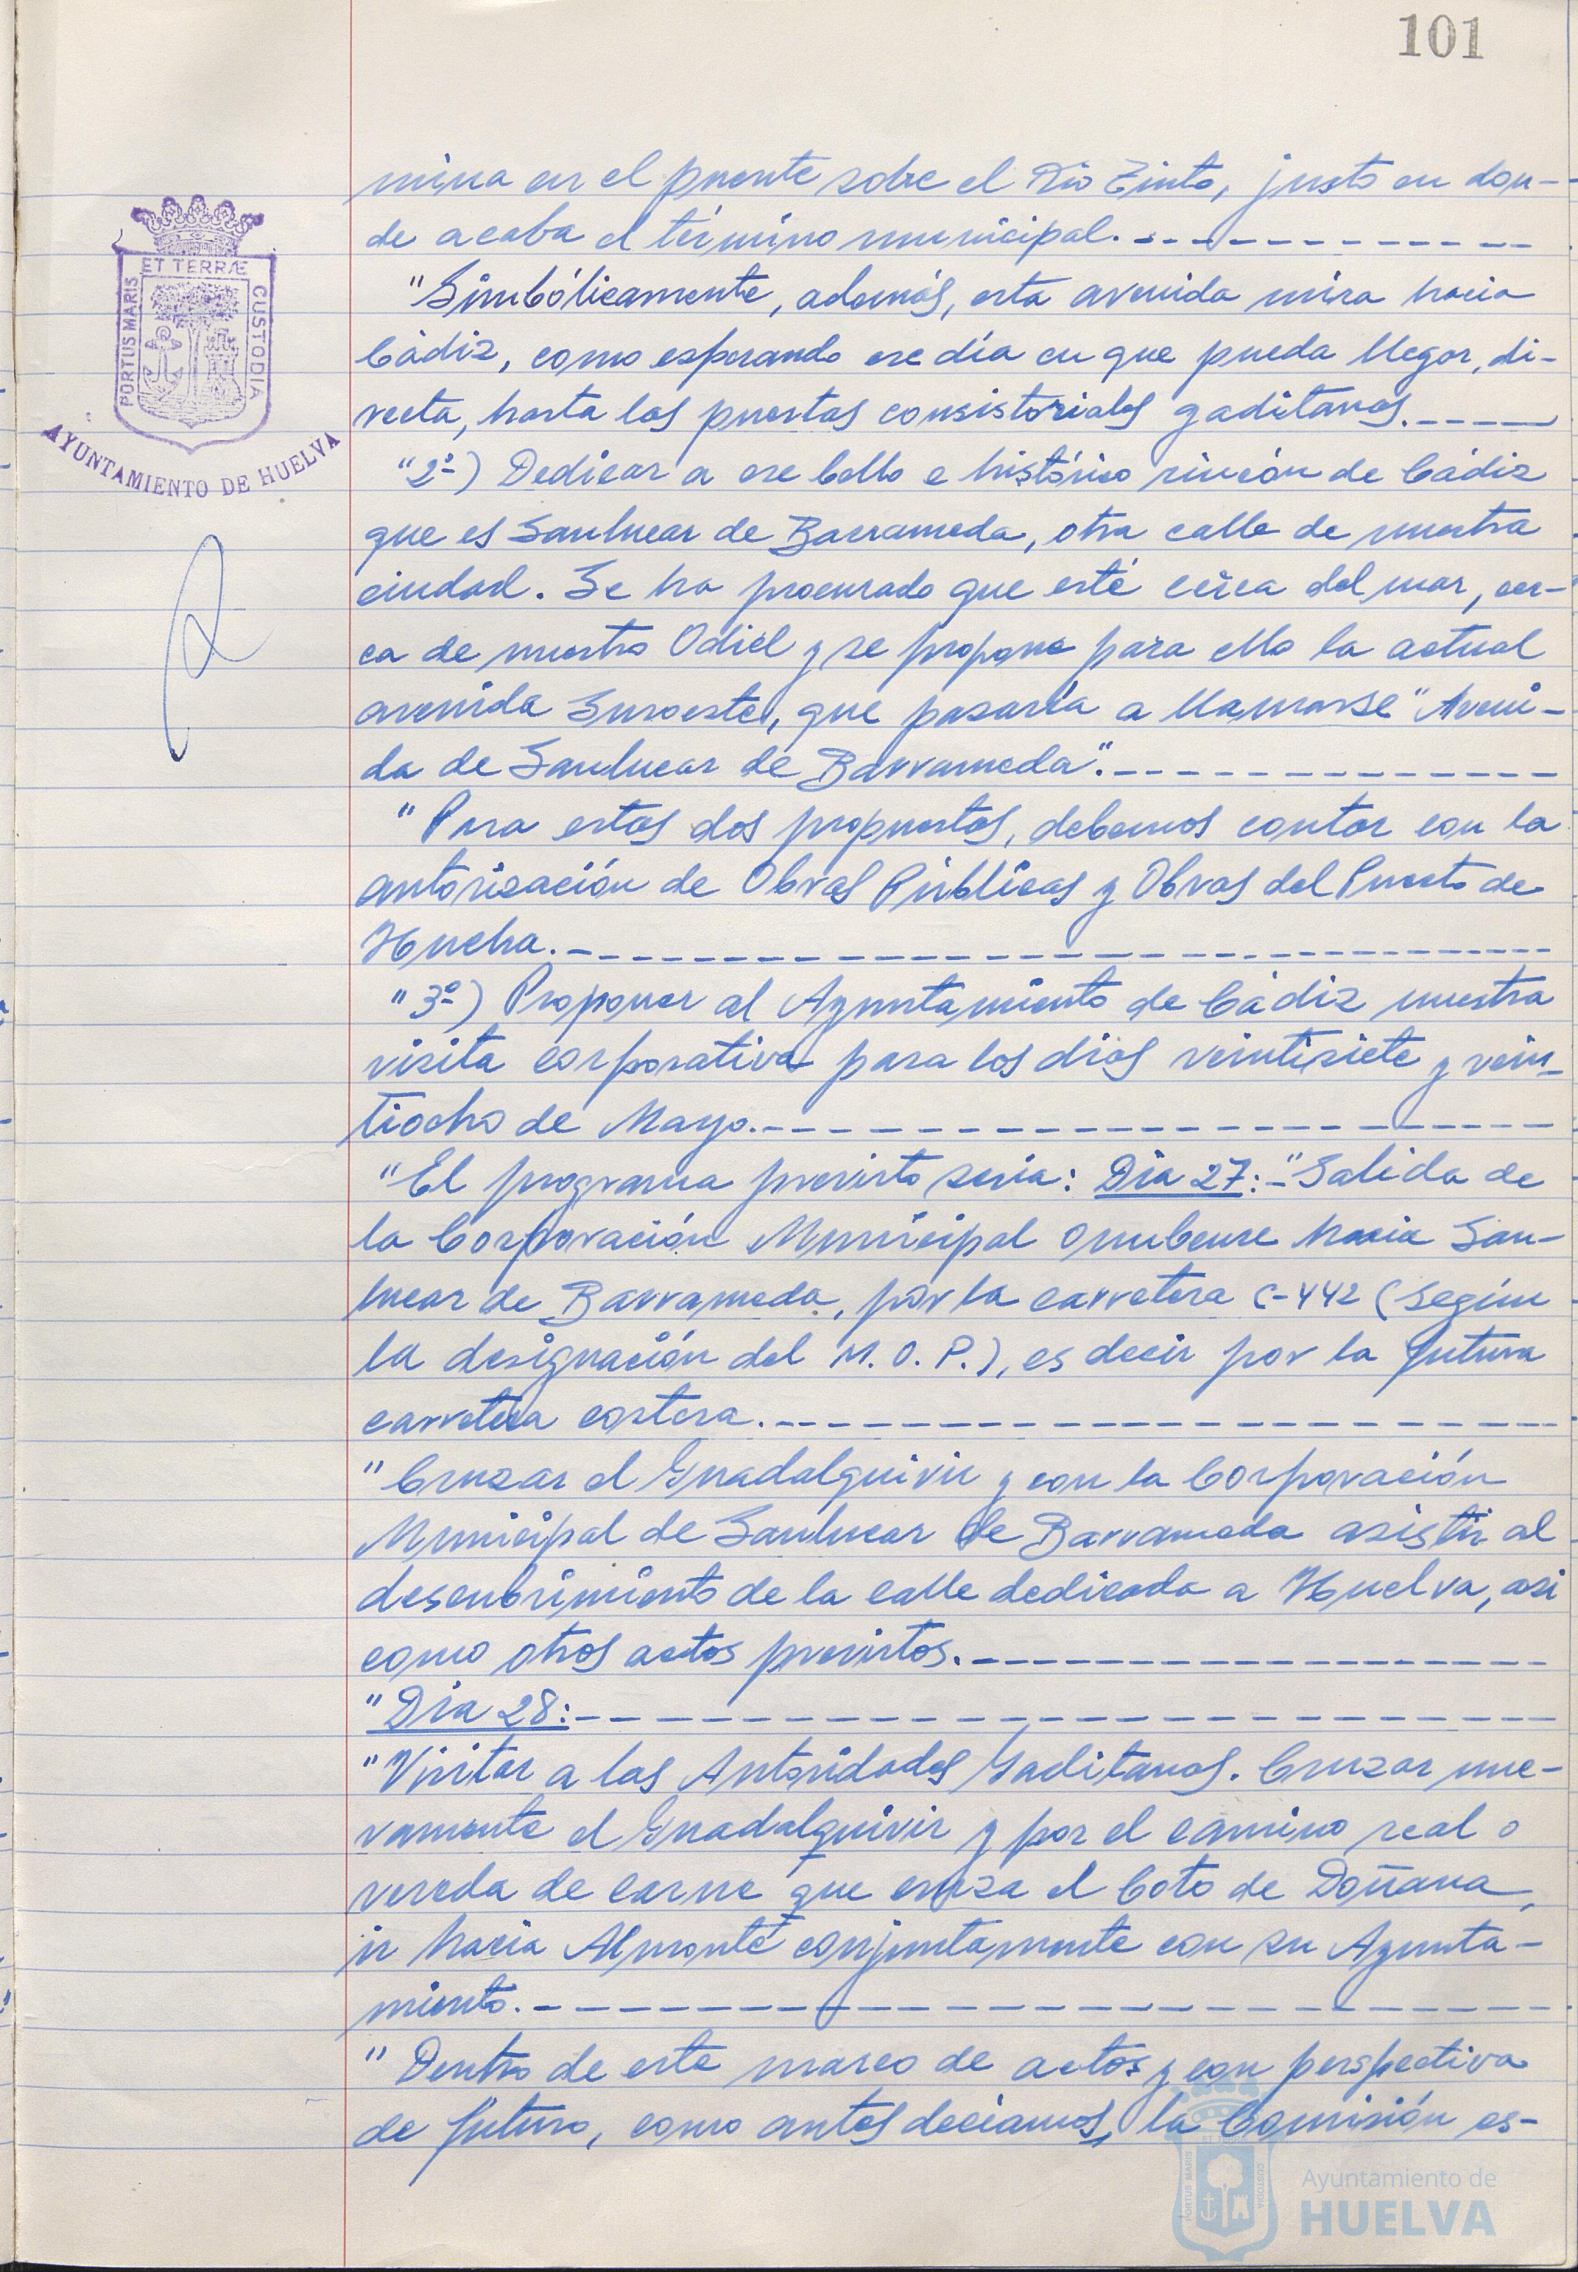 101
mina en el puente sobre el Rio Tinto, justo en don-
de acaba el término municipal.
"Simbólicamente, además, esta avenida mira hacia
Cádiz, como esperando ese día en que pueda llegar, di-
recta, hasta las puertas consistoriales gaditanas.
"2º-) Dedicar a ese bello e histórico rincón de Cádiz
que es Sanlucar de Barrameda, otra calle de nuestra
ciudad. Se ha procurado que esté cerca del mar, cer-
ca de nuestro Odiel y se propone para ello la actual
avenida Suroeste, que pasaría a llamarse "Aveni-
da de Sanlucar de Barrameda".
"Para estas dos propuestas, debemos contar con la
autorización de Obras Públicas y Obras del Puerto de
Huelva.
"3º-) Proponer al Ayuntamiento de Cádiz nuestra
visita corporativa para los días veintisiete y vein-
tiocho de Mayo.
"El programa previsto seria: Dia 27:-"Salida de
la Corporación Municipal onubense hacia San-
lucar de Barrameda, por la carretera C-442 (según
la designación del M.O.P.), es decir por la futura
carretera costera.
"Cruzar el Guadalquivir y con la Corporación
Municipal de Sanlucar de Barrameda asistir al
descubrimiento de la calle dedicada a Huelva, asi
como otros actos previstos.
"Dia 28:
"Visitar a las Autoridades Gaditanas. Cruzar nue-
vamente el Guadalquivir y por el camino real o
vereda de carne que cruza el Coto de Doñana,
ir hacia Almonte conjuntamente con su Ayunta-
miento.
"Dentro de este marco de actos y con perspectiva
de futuro, como antes deciamos, la Comisión es-
PORTUS MARIS
ET TERRÆ
CUSTODIA
AYUNTAMIENTO DE HUELVA
PORTUS MARIS
CUSTODIA
Ayuntamiento de
HUELVA